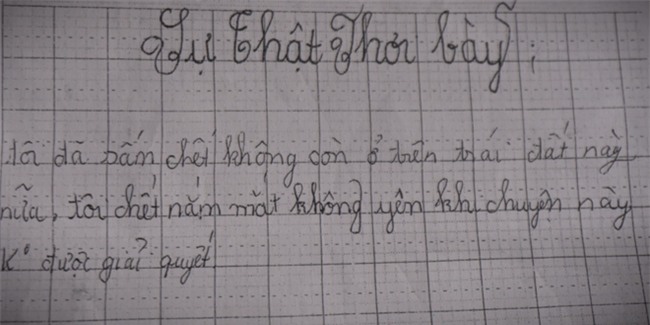 Sự Thật Phơi bày :
tôi đã bấm chết không còn ở trên trái đất này
nữa, tôi chết nắm mắt không yên khi chuyện này
K° được giải quyết